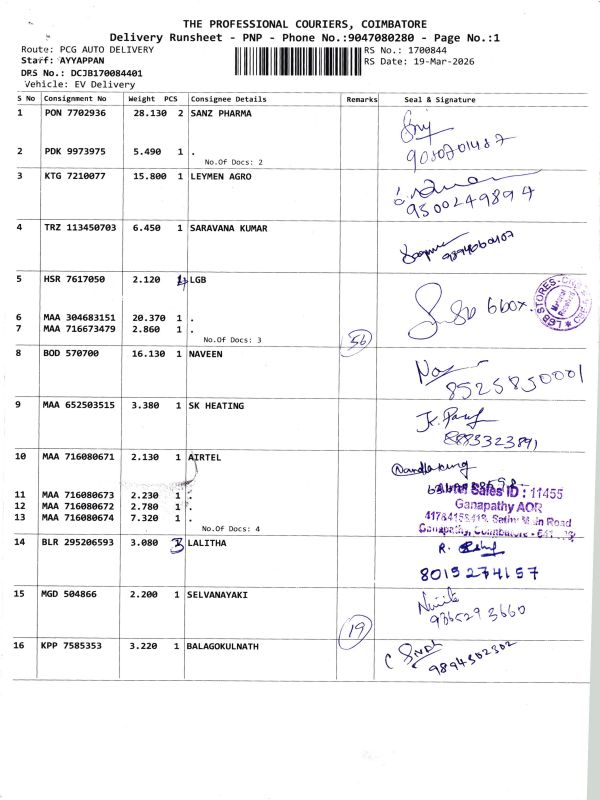 THE PROFESSIONAL COURIERS, COIMBATORE
Delivery Runsheet - PNP - Phone No.:9047080280 - Page No.:1
Route: PCG AUTO DELIVERY
RS No.: 1700844
Staff: AYYAPPAN
RS Date: 19-Mar-2026
DRS No.: DCJB170084401
Vehicle: EV Delivery
S No Consignment No Weight PCS Consignee Details Remarks Seal & Signature
1 PON 7702936 28.130 2 SANZ PHARMA
2 PDK 9973975 5.490 1 .
No.Of Docs: 2
3 KTG 7210077 15.800 1 LEYMEN AGRO
9300249894
4 TRZ 113450703 6.450 1 SARAVANA KUMAR
5 HSR 7617050 2.120 4 LGB
LGB STORES
Material
6 box.
6 MAA 304683151 20.370 1 .
7 MAA 716673479 2.860 1 .
No.Of Docs: 3
56
8 BOD 570700 16.130 1 NAVEEN
8525850001
9 MAA 652503515 3.380 1 SK HEATING
8883323891
10 MAA 716080671 2.130 1 AIRTEL
11 MAA 716080673 2.230 1 .
12 MAA 716080672 2.780 1 .
13 MAA 716080674 7.320 1 .
No.Of Docs: 4
Sales ID : 11455
Ganapathy AOR
Main Road
14 BLR 295206593 3.080 3 LALITHA
8015274157
15 MGD 504866 2.200 1 SELVANAYAKI
9865293660
19
16 KPP 7585353 3.220 1 BALAGOKULNATH
9894302302